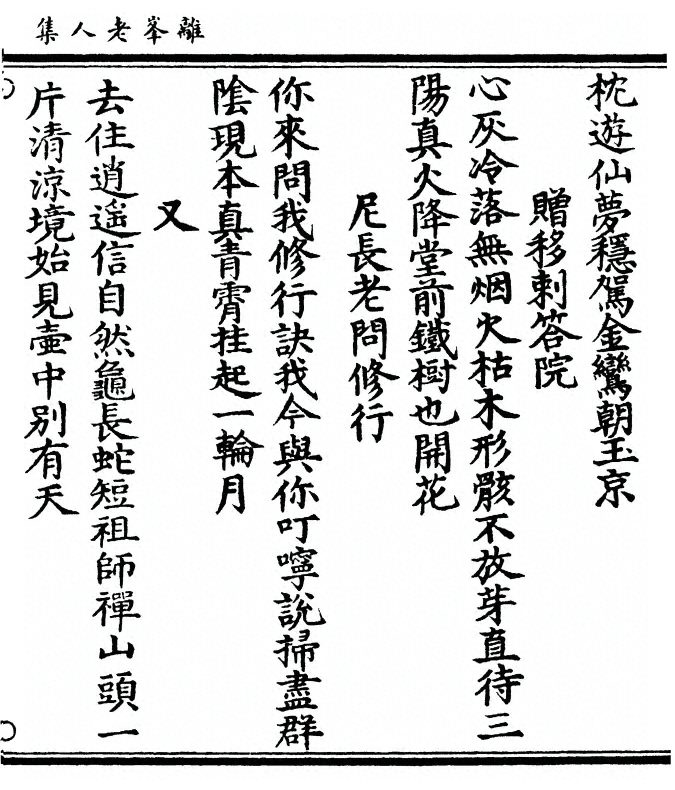 離峯老人集
枕遊仙夢穩駕金鸞朝玉京
贈移剌答院
心灰冷落無烟火枯木形骸不放芽直待三
陽真火降堂前鐵樹也開花
尼長老問修行
你來問我修行訣我今與你叮嚀說掃盡群
陰現本真青霄挂起一輪月
又
去住逍遙信自然龜長蛇短祖師禪山頭一
片清涼境始見壷中別有天